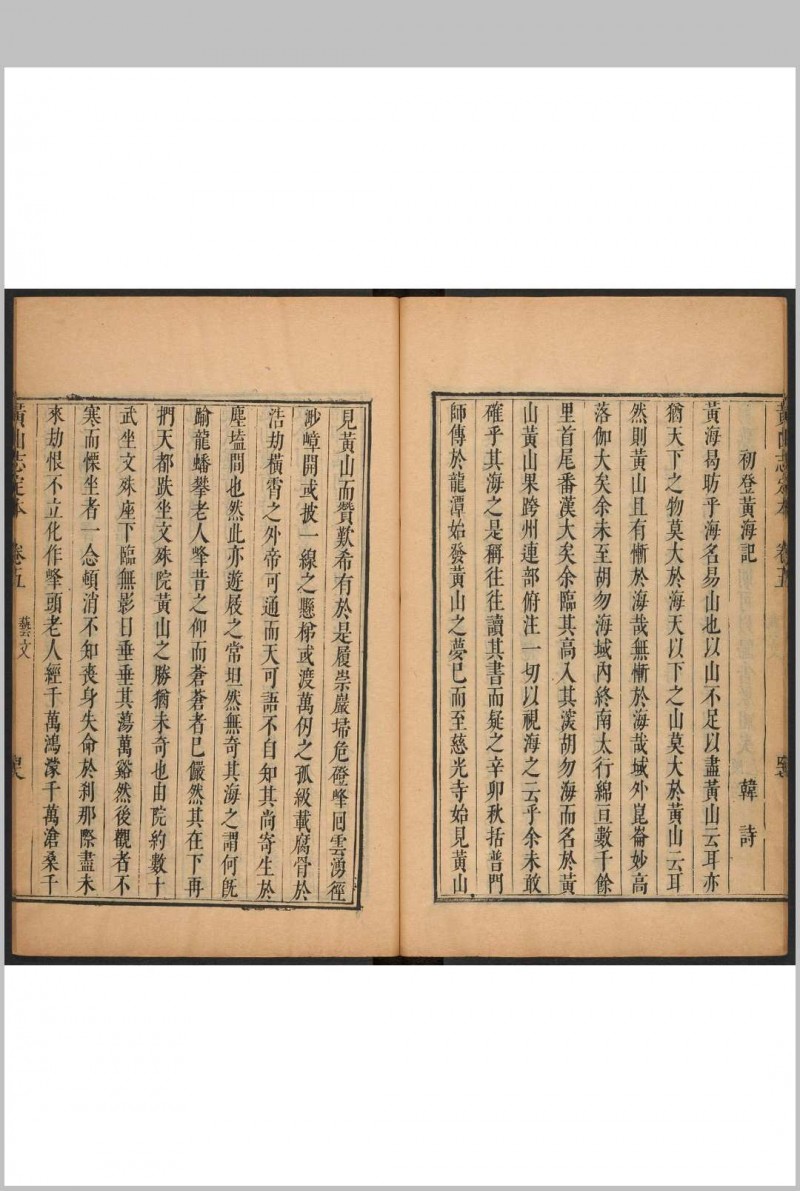 初登黃海記
韓詩
黃海曷昉乎海名易山也以山不足以盡黃山云耳亦
猶天下之物莫大於海天以下之山莫大於黃山云耳
然則黃山且有慚於海哉無慚於海哉域外崑崙妙高
落伽大矣余未至胡勿海域內終南太行綿亘數千餘
里首尾番漢大矣余臨其高入其深胡勿海而名於黃
山黃山果跨州連部俯注一切以視海之云乎余未敢
確乎其海之是稱往往讀其書而疑之辛卯秋括普門
師傳於龍潭始發黃山之夢巳而至慈光寺始見黃山
見黃山而贊歎希有於是履崇巖埽危磴峰囘雲湧徑
渺嶂開或披一線之懸梯或渡萬仞之孤級載腐骨於
浩劫橫霄之外帝可通而天可語不自知其尚寄生於
塵壒間也然此亦遊屐之常坦然無奇其海之謂何旣
踰龍蟠攀老人峰昔之仰而蒼蒼者巳儼然其在下再
捫天都趺坐文殊院黃山之勝猶未奇也由院約數十
武坐文殊座下臨無影日垂垂其蕩萬谿然後觀者不
寒而慄坐者一念頓消不知喪身失命於刹那際盡未
來劫恨不立化作峰頭老人經千萬鴻濛千萬滄桑千
黃山志定本
卷五
藝文
黃山志定本
卷五